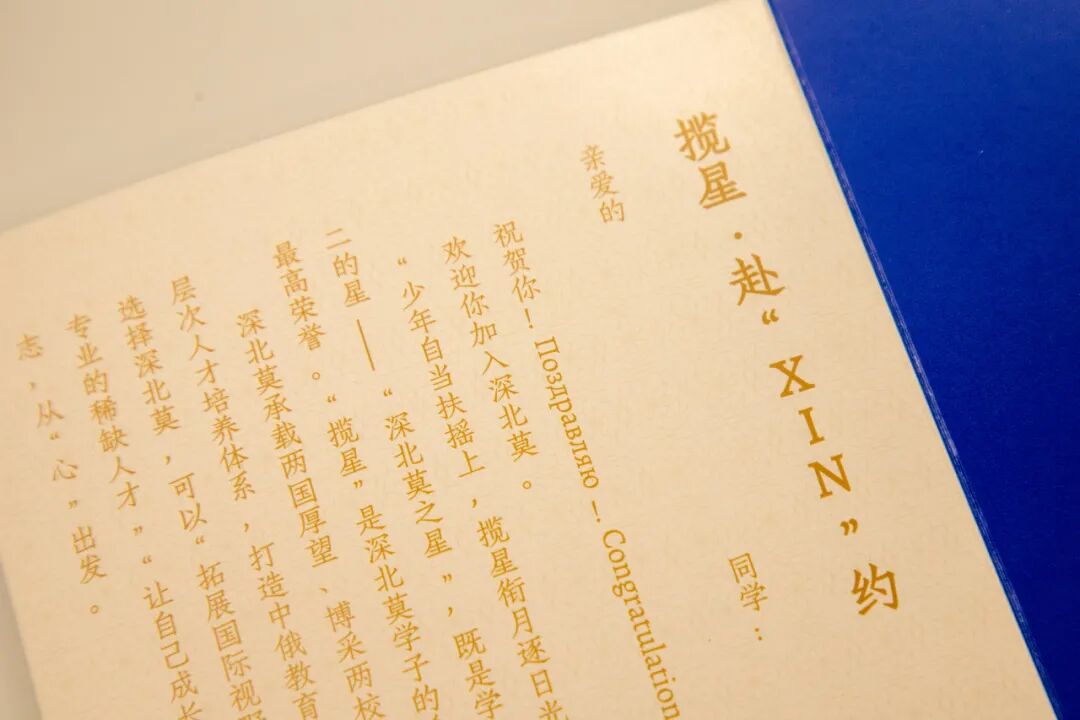 揽星·赴“XIN”约
亲爱的 同学：
祝贺你！Поздравляю！Congratulation
欢迎你加入深北莫。
“少年自当扶摇上，揽星衔月逐日光
二的星——“深北莫之星”，既是学
最高荣誉。“揽星”是深北莫学子的
深北莫承载两国厚望、博采两校
层次人才培养体系，打造中俄教育
选择深北莫，可以“拓展国际视野
专业的稀缺人才”“让自己成长
志，从“心”出发。